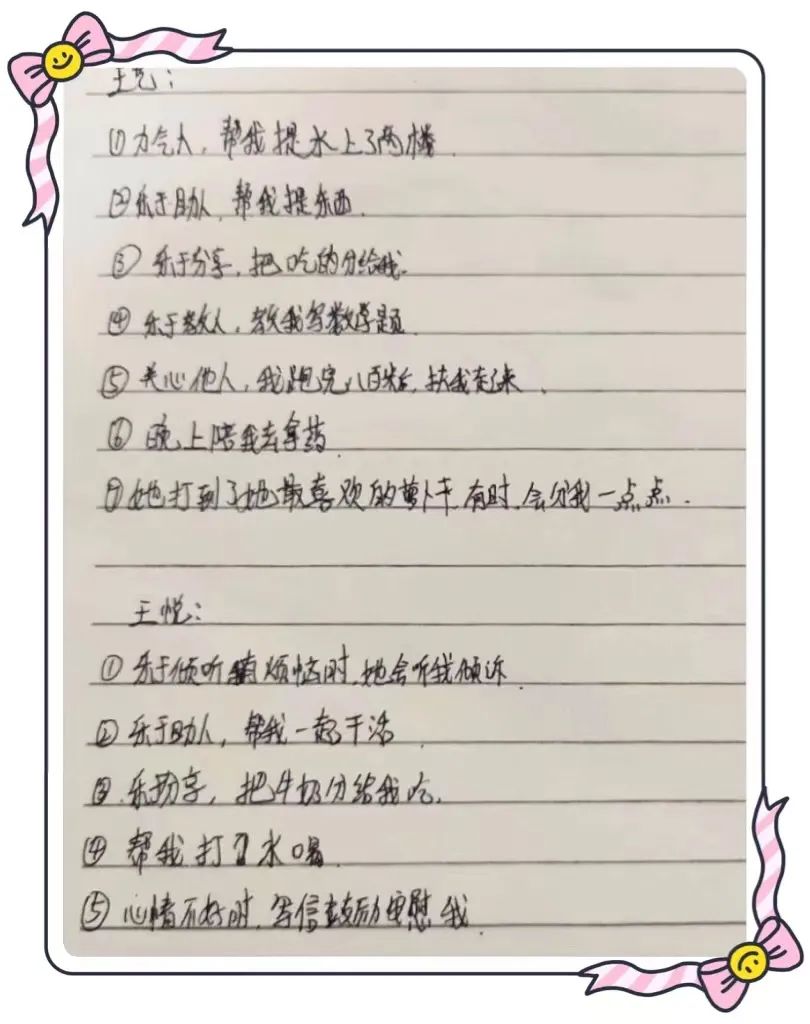 王艺：
①力气大，帮我提水上了两楼.
②乐于助人，帮我提东西.
③乐于分享，把吃的分给我.
④乐于教人，教我写数学题.
⑤关心他人，我跑完八百米后，扶我走了来.
⑥晚上陪我去拿药.
⑦她打到了她最喜欢的萝卜干，有时，会分我一点点.
王悦：
①乐于倾听，有烦恼时，她会听我倾诉.
②乐于助人，帮我一起干活.
③乐于分享，把牛奶分给我吃.
④帮我打了水喝.
⑤心情不好时，写信鼓励安慰我.